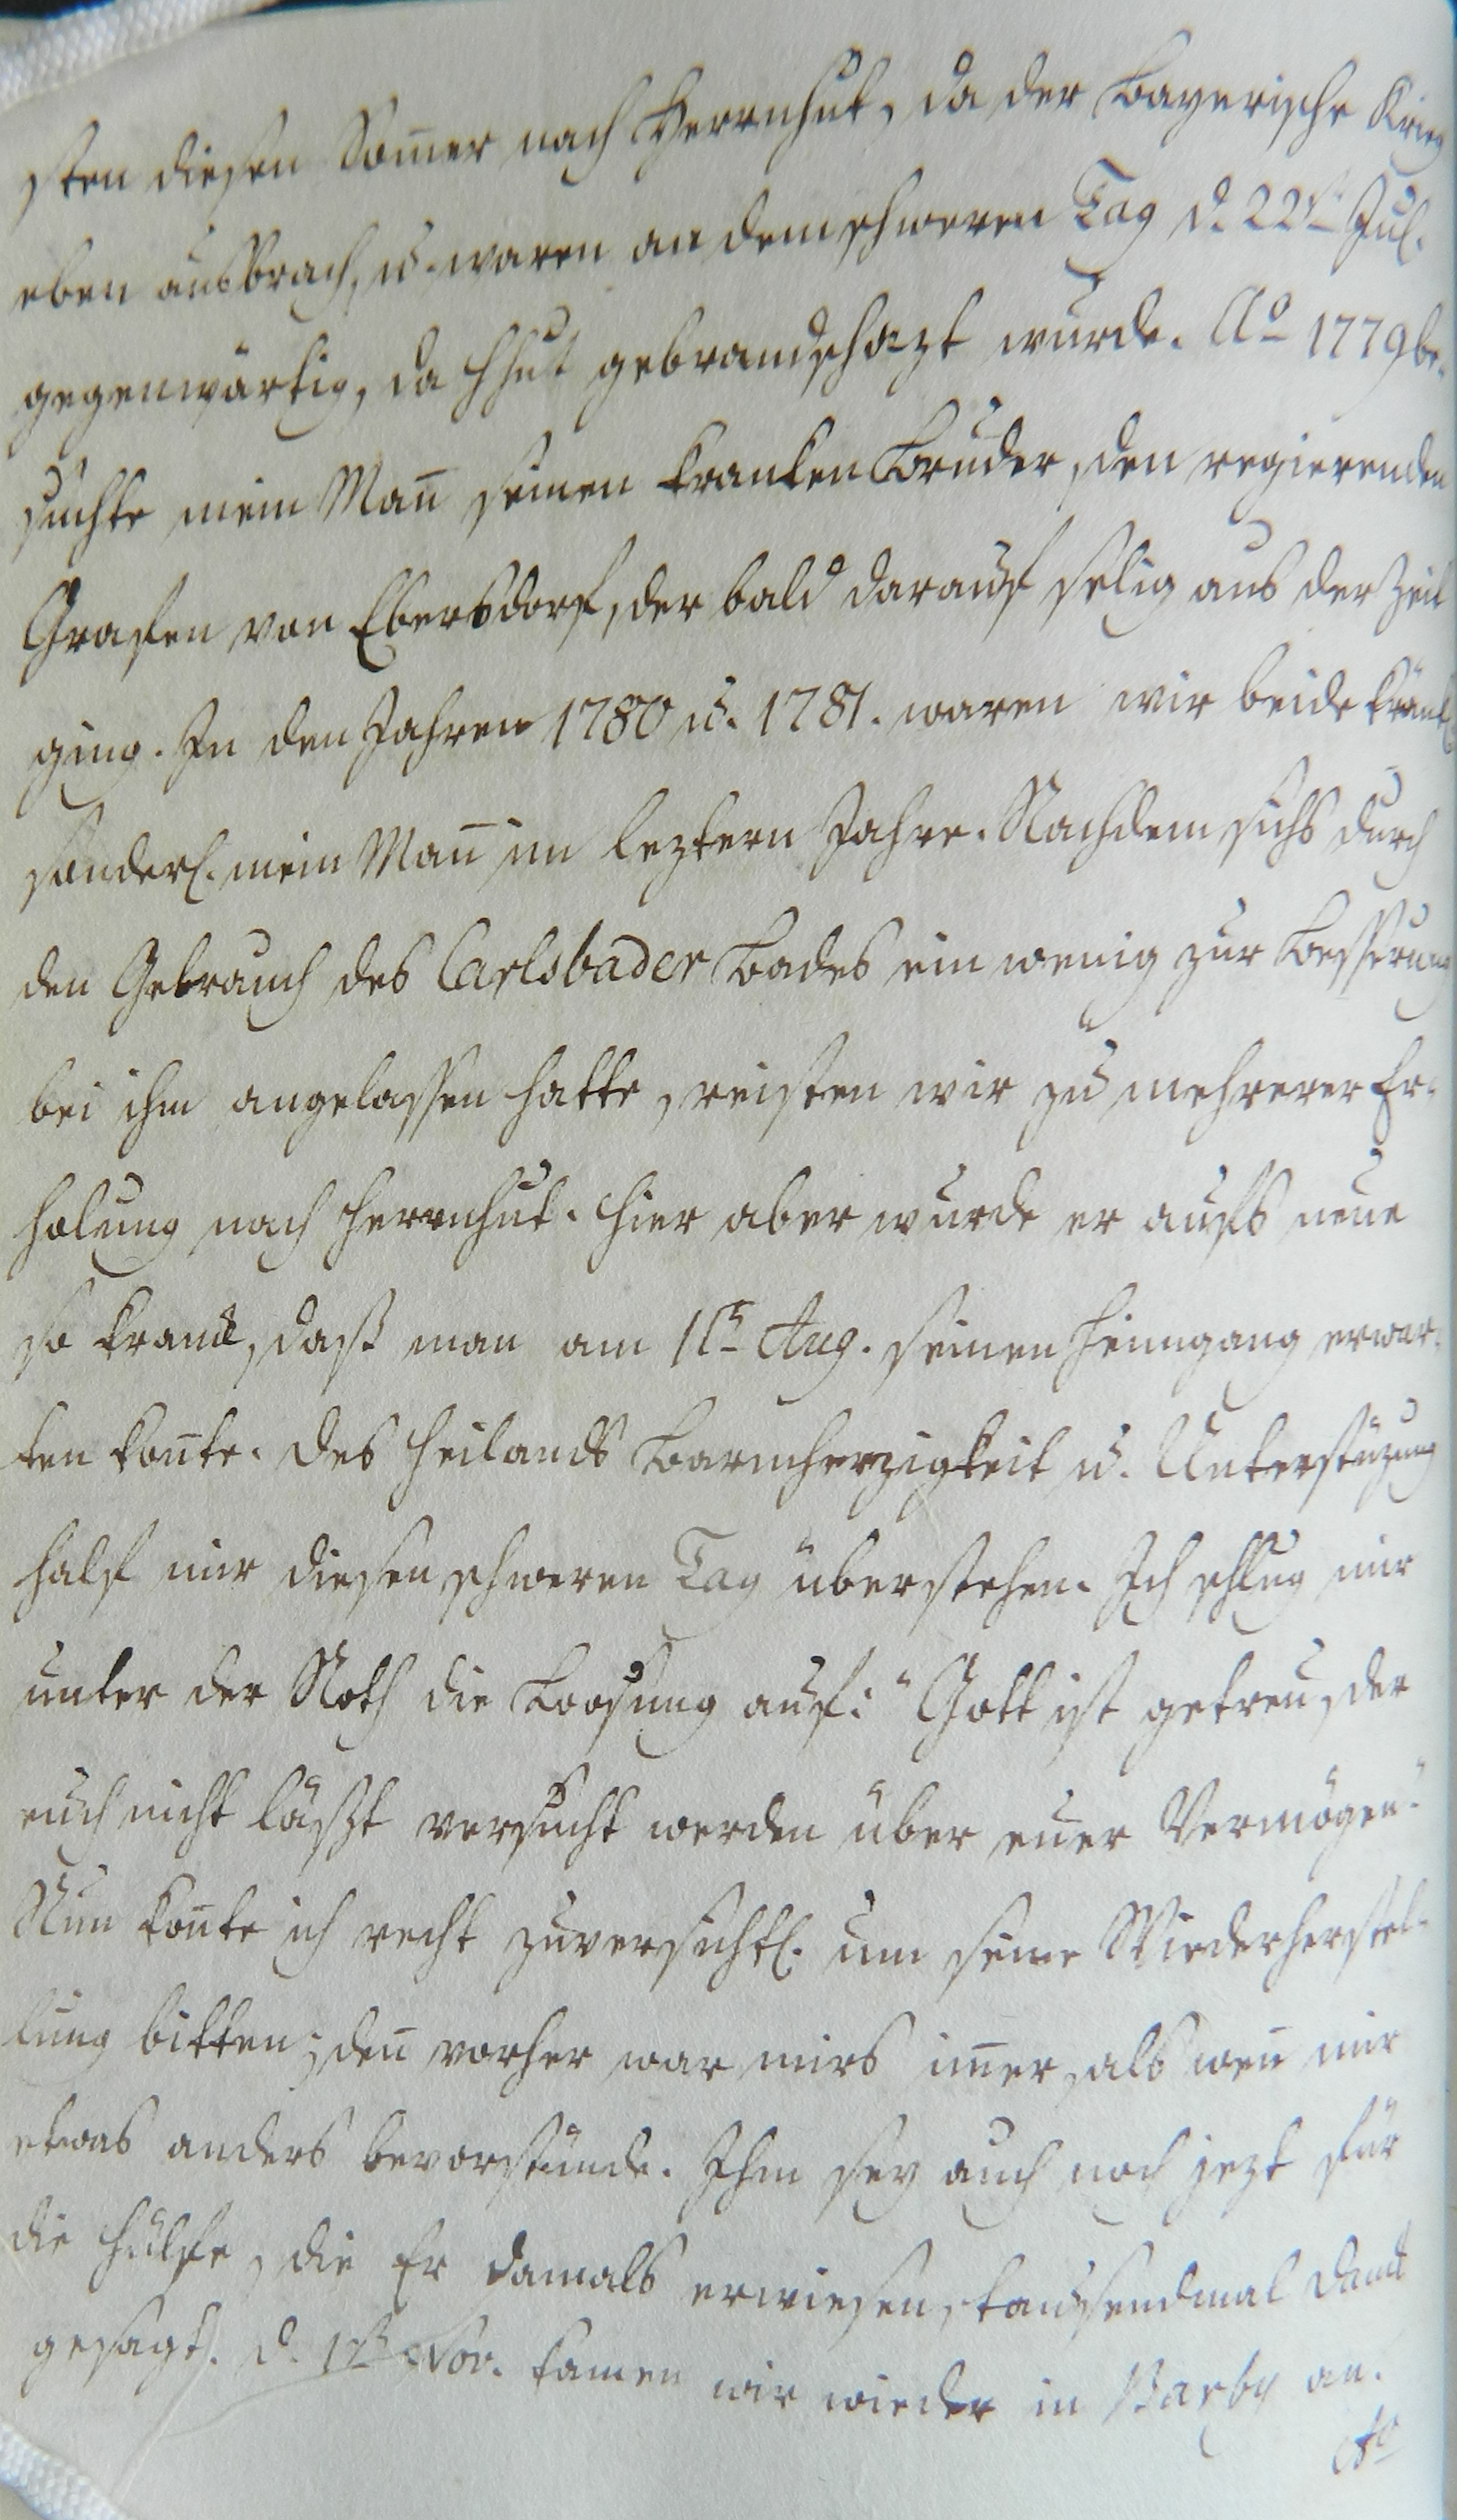 sten diesen Som̅er nach Herrnhut, da der Bayerische Krieg
eben ausbrach, u. waren an dem schweren Tag d. 22t Jul.
gegenwärtig, da Hhut gebrandschazt wurde. Ao 1779 be-
suchte mein Man̅ seinen kranken Bruder, den regierenden
Grafen von Ebersdorf, der bald darauf selig aus der Zeit
ging. In den Jahren 1780 u. 1781. waren wir beide kränkl.
sonderl. mein Man̅ im leztern Jahre. Nachdem sichs durch
den Gebrauch des Carlsbader Bades ein wenig zur Besserung
bei ihm angelassen hatte, reisten wir zu mehrerer Er-
holung nach Herrnhut. Hier aber wurde er aufs neue
so krank, daß man am Aug. seinen Heimgang erwar-
ten kon̅te. Des Heilands Barmherzigkeit u. Unterstüzung
half mir diesen schweren Tag überstehen. Ich schlug mir
unter der Noth die Loosung auf: "Gott ist getreu, der
euch nicht läßt versucht werden über euer Vermögen."
Nun kon̅te ich recht zuversichtl. um seine Wiederherstel-
lung bitten; den̅ vorher war mirs im̅er, als wen̅ mir
etwas anders bevorstünde. Ihm sey auch noch jezt für
die Hülfe, die Er damals erwiesen, tausendmal Dank
gesagt. d. 1t Nov. kamen wir wieder in Barby an.
Ao